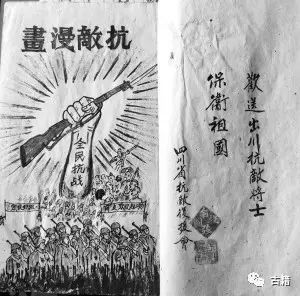 抗敵漫畫
全民抗战
歡送出川抗敵將士
保衛祖國
四川省抗敵後援會
古籍